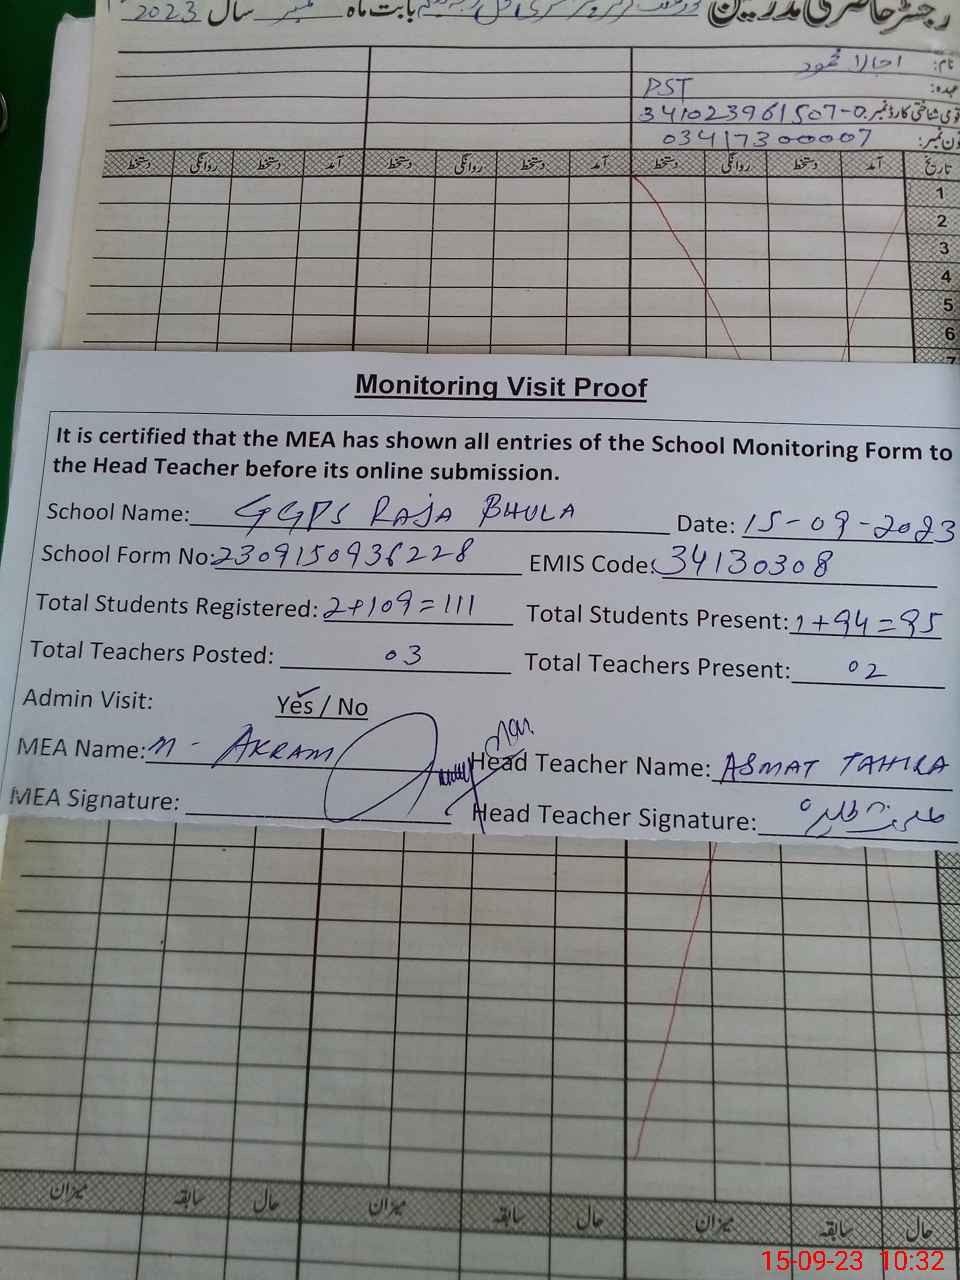 رجسٹر حاضری مدرسین
بابت ماہ ستمبر سال 2023
نام: اجالا محمود
عہدہ: PST
قومی شناختی کارڈ نمبر: 341023961507-0
فون نمبر: 03417300007
تاریخ آمد دستخط روانگی دستخط آمد دستخط روانگی دستخط آمد دستخط روانگی دستخط
1
2
3
4
5
6
7
Monitoring Visit Proof
It is certified that the MEA has shown all entries of the School Monitoring Form to
the Head Teacher before its online submission.
School Name: GGPS RAJA BHULA Date: 15-09-2023
School Form No: 2309150936228 EMIS Code: 34130308
Total Students Registered: 2+109=111 Total Students Present: 1+94=95
Total Teachers Posted: 03 Total Teachers Present: 02
Admin Visit: Yes / No
MEA Name: M - AKRAM Head Teacher Name: ASMAT TAHIRA
MEA Signature: Head Teacher Signature:
حال سابقہ میزان حال سابقہ میزان حال سابقہ میزان
15-09-23 10:32